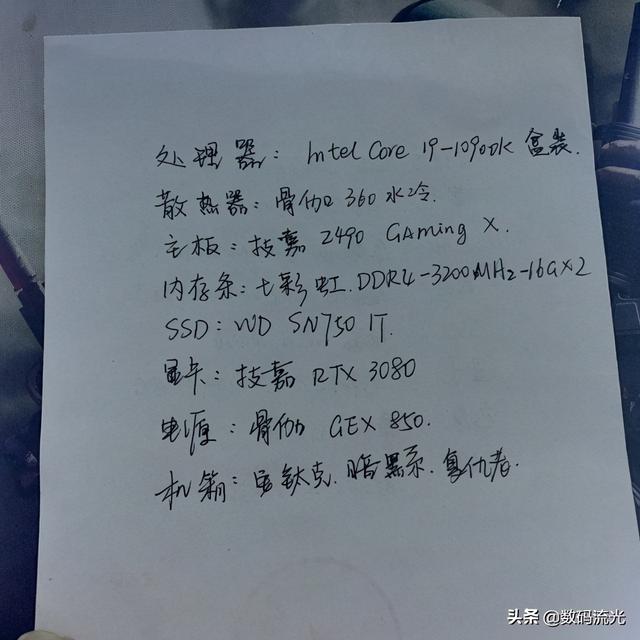 处理器：Intel Core i9-10900K 盒装.
散热器：骨伽 360 水冷.
主板：技嘉 Z490 GAming X.
内存条：七彩虹.DDR4-3200MHz-16G×2
SSD：WD SN750 1T.
显卡：技嘉 RTX 3080
电源：骨伽 GEX 850.
机箱：安钛克.暗黑系.复仇者.
头条 @数码流光